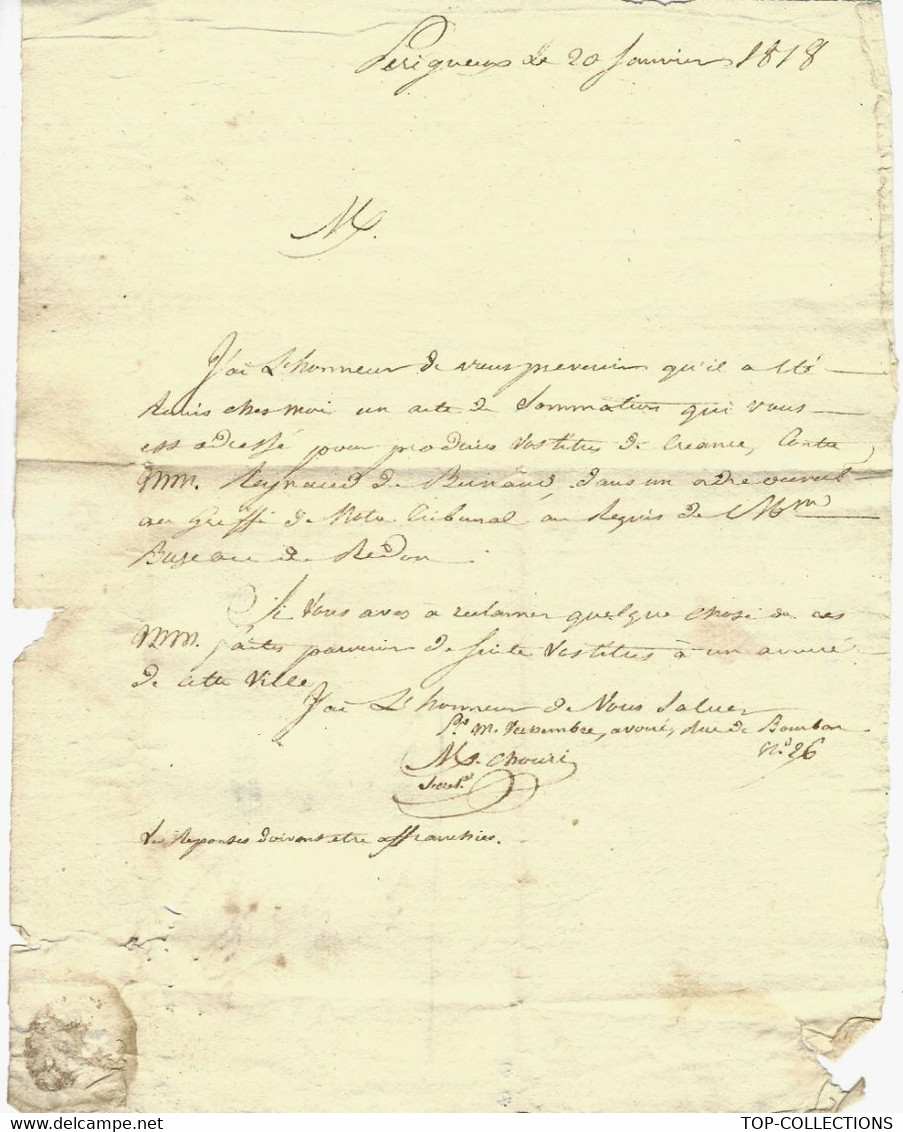 Perigueux le 20 Janvier 1818
M.
J'ai L'honneur de vous prevenir qu'il a eté
Remis chez moi un acte de Sommation qui vous
est adressé pour produire vos titres de Creance, Contre
MM. Reynaud de dans un ordre ouvert
au Greffe de Notre tribunal au Requis de Mm
de Redon
Si Vous avez a reclamer quelque chose de ces
MM. faites parvenir de suite Vos titres à un avoué
de cette ville,
J'ai L'honneur de Vous Saluer
Pr. M. avoué, Rue de Bourbon
N° 26
M. Chouri
Secret.
Les Reponses doivent etre affranchies.
TOP-COLLECTIONS